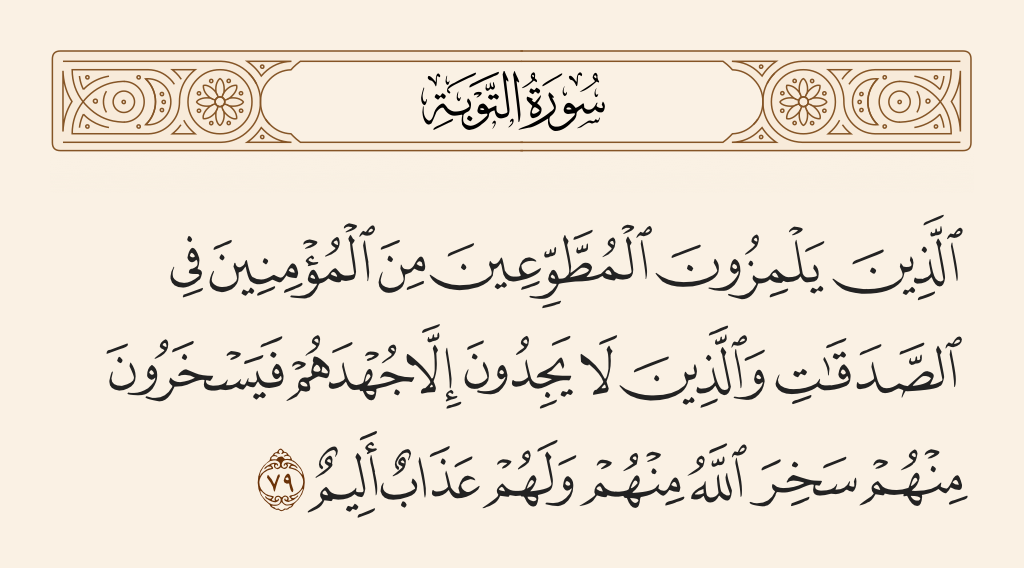 سُورَةُ التَّوۡبَةِ
ٱلَّذِينَ يَلۡمِزُونَ ٱلۡمُطَّوِّعِينَ مِنَ ٱلۡمُؤۡمِنِينَ فِي
ٱلصَّدَقَٰتِ وَٱلَّذِينَ لَا يَجِدُونَ إِلَّا جُهۡدَهُمۡ فَيَسۡخَرُونَ
مِنۡهُمۡ سَخِرَ ٱللَّهُ مِنۡهُمۡ وَلَهُمۡ عَذَابٌ أَلِيمٌ ٧٩